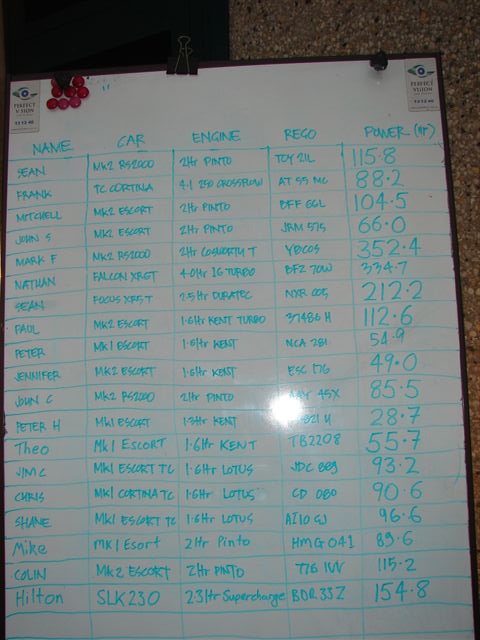 PERFECT VISION PERFECT VISION
NAME CAR ENGINE REGO POWER (HP)
SEAN MK2 RS2000 2ltr PINTO TOY 21L 115.8
FRANK TC CORTINA 4.1 250 CROSSFLOW AT 55 MC 88.2
MITCHELL MK2 ESCORT 2ltr PINTO BFF 66L 104.5
JOHN S MK2 ESCORT 2ltr PINTO JRM 575 66.0
MARK F MK2 RS2000 2ltr COSWORTH T YBCOS 352.4
NATHAN FALCON XRGT 4.0ltr IG TURBO BFZ 70W 334.7
SEAN FOCUS XR5 T 2.5ltr DURATEC NXR 005 212.2
PAUL MK2 ESCORT 1.6ltr KENT TURBO 37486 H 112.6
PETER MK1 ESCORT 1.6ltr KENT NCA 281 54.9
JENNIFER MK2 ESCORT 1.6ltr KENT ESC 176 49.0
JOHN C MK2 RS2000 2ltr PINTO 45X 85.5
PETER H MK1 ESCORT 1.3ltr KENT 28.7
Theo MK1 Escort 1.6ltr KENT TB2208 55.7
JIM C MK1 ESCORT TC 1.6ltr LOTUS JDC 889 93.2
CHRIS MK1 CORTINA TC 1.6ltr LOTUS CD 080 90.6
SHANE MK1 ESCORT TC 1.6ltr LOTUS AI10 GJ 96.6
Mike MK1 Esort 2ltr Pinto HMG 041 89.6
COLIN MK2 ESCORT 2ltr PINTO 776 IVV 115.2
Hilton SLK230 2.3ltr Supercharge BDR 33Z 154.8